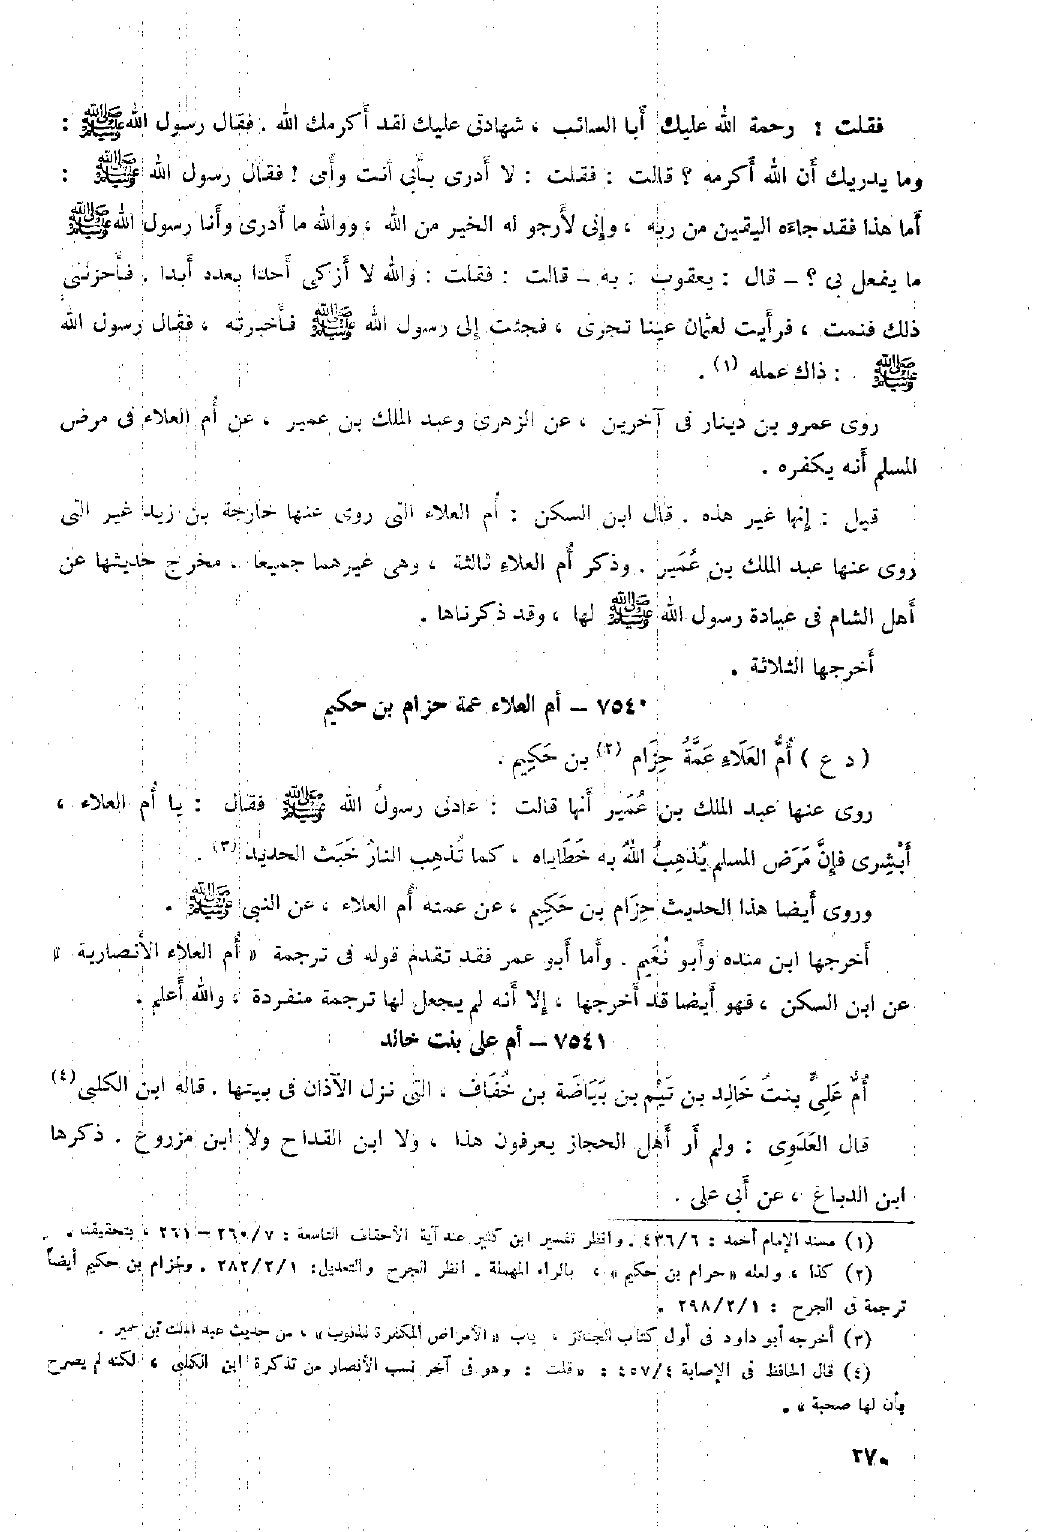 فقلت : رحمة الله عليك أبا السائب ، شهادتى عليك لقد أكرمك الله . فقال رسول الله ﷺ :
وما يدريك أن الله أكرمه ؟ قالت : فقلت : لا أدرى بأبى أنت وأمى ! فقال رسول الله ﷺ :
أما هذا فقد جاءه اليقين من ربه ، وإنى لأرجو له الخير من الله ، ووالله ما أدرى وأنا رسول الله ﷺ
ما يفعل بى ؟ - قال : يعقوب : به - قالت : فقلت : والله لا أزكى أحدا بعده أبدا . فأحزننى
ذلك فنمت ، فرأيت لعثمان عينا تجرى ، فجئت إلى رسول الله ﷺ فأخبرته ، فقال رسول الله
ﷺ : ذاك عمله (١) .
روى عمرو بن دينار فى آخرين ، عن الزهرى وعبد الملك بن عمير ، عن أم العلاء فى مرض
المسلم أنه يكفره .
قيل : إنها غير هذه . قال ابن السكن : أم العلاء التى روى عنها خارجة بن زيد غير التى
روى عنها عبد الملك بن عُمَير . وذكر أم العلاء ثالثة ، وهى غيرهما جميعا ، مخرج حديثها عن
أهل الشام فى عيادة رسول الله ﷺ لها ، وقد ذكرناها .
أخرجها الثلاثة .
٧٥٤٠ - أم العلاء عمة حزام بن حكيم
( د ع ) أُمُّ العَلَاءِ عَمَّةُ حِزَام (٢) بن حَكِيم .
روى عنها عبد الملك بن عُمَير أنها قالت : عادنى رسولُ الله ﷺ فقال : يا أم العلاء ،
أَبْشِرى فإنَّ مَرَض المسلم يُذهِبُ اللهُ به خَطَاياه ، كما تُذهِب النارُ خَبَث الحديد (٣) .
وروى أيضا هذا الحديث حِزَام بن حَكِيم ، عن عمته أم العلاء ، عن النبى ﷺ .
أخرجها ابن منده وأبو نُعَيم . وأما أبو عمر فقد تقدم قوله فى ترجمة « أم العلاء الأنصارية »
عن ابن السكن ، فهو أيضا قد أخرجها ، إلا أنه لم يجعل لها ترجمة منفردة ، والله أعلم .
٧٥٤١ - أم على بنت خالد
أُمُّ عَلِىٍّ بنتُ خَالِد بن تَيْم بن بَيَاضَة بن خُفَاف ، التى نزل الآذان فى بيتها . قاله ابن الكلبى (٤)
قال العَدَوِى : ولم أر أهل الحجاز يعرفون هذا ، ولا ابن القداح ولا ابن مزروع . ذكرها
ابن الدباغ ، عن أبى على .
(١) مسند الإمام أحمد : ٤٣٦/٦ . وانظر تفسير ابن كثير عند آية الأحقاف التاسعة : ٢٦٠/٧ - ٢٦١ ، بتحقيقنا .
(٢) كذا ، ولعله « حرام بن حكيم » ، بالراء المهملة . انظر الجرح والتعديل : ٢٨٢/٢/١ . ولحزام بن حكيم أيضاً
ترجمة فى الجرح : ٢٩٨/٢/١ .
(٣) أخرجه أبو داود فى أول كتاب الجنائز ، باب « الأمراض المكفرة للذنوب » ، من حديث عبد الملك بن عمير .
(٤) قال الحافظ فى الإصابة ٤٥٧/٤ : « قلت : وهو فى آخر نسب الأنصار من تذكرة ابن الكلبى ، لكنه لم يصرح
بأن لها صحبة » .
٢٧٠